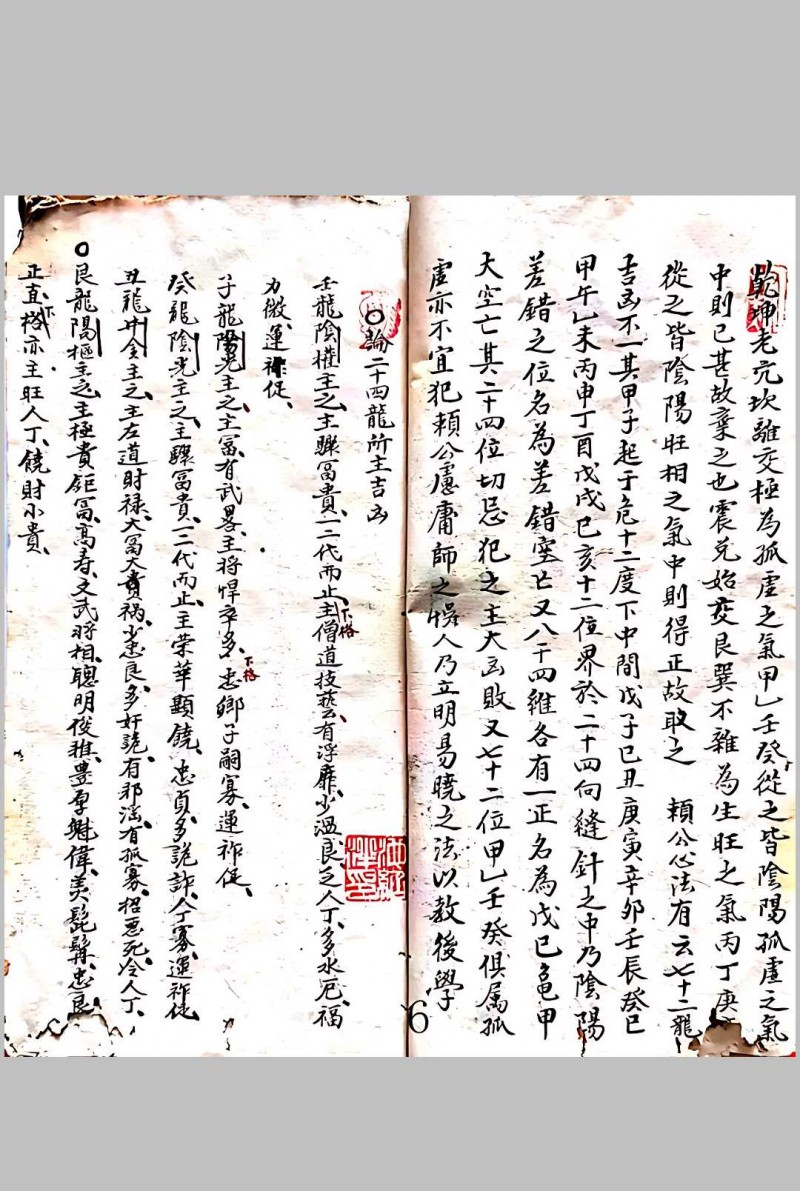 乾坤老亢坎離交極為孤虛之氣甲乙壬癸從之皆陰陽孤虛之氣
中則已甚故棄之也震兌始交艮巽不雜為生旺之氣丙丁庚
從之皆陰陽旺相之氣中則得正故取之　賴公心法有云七十二龍
吉凶不一其甲子起于危十二度下中間戊子己丑庚寅辛卯壬辰癸巳
甲午乙未丙申丁酉戊戌巳亥十二位界於二十四向縫針之中乃陰陽
差錯之位名為差錯空亡又八干四維各有一正名為戊巳龜甲
大空亡其二十四位切忌犯之主大凶敗又七十二位甲乙壬癸俱属孤
虛亦不宜犯賴公慮庸師之悞人乃立明易曉之法以教後學
○論二十四龍所主吉凶
壬龍陰權主之主驟冨貴一二代而止主僧道技藝有浮靡少溫良乏人丁多水厄福
下格
力微運祚促
子龍陽光主之主冨有武畧主將悍卒多忠鄉子嗣寡運祚促
下格
癸龍陰光主之主驟冨貴一二代而止主荣華顯饒忠貞多詭詐人丁寡運祚促
丑龍牛金主之主左道財禄大冨大貴祸少忠良多奸詭有邪滛有孤寡招惡死冷人丁
○艮龍陽樞主之主極貴鉅冨高寿文武將相聰明俊雅豊厚魁偉美髭髯忠良
正直下格亦主旺人丁饒財小貴
6